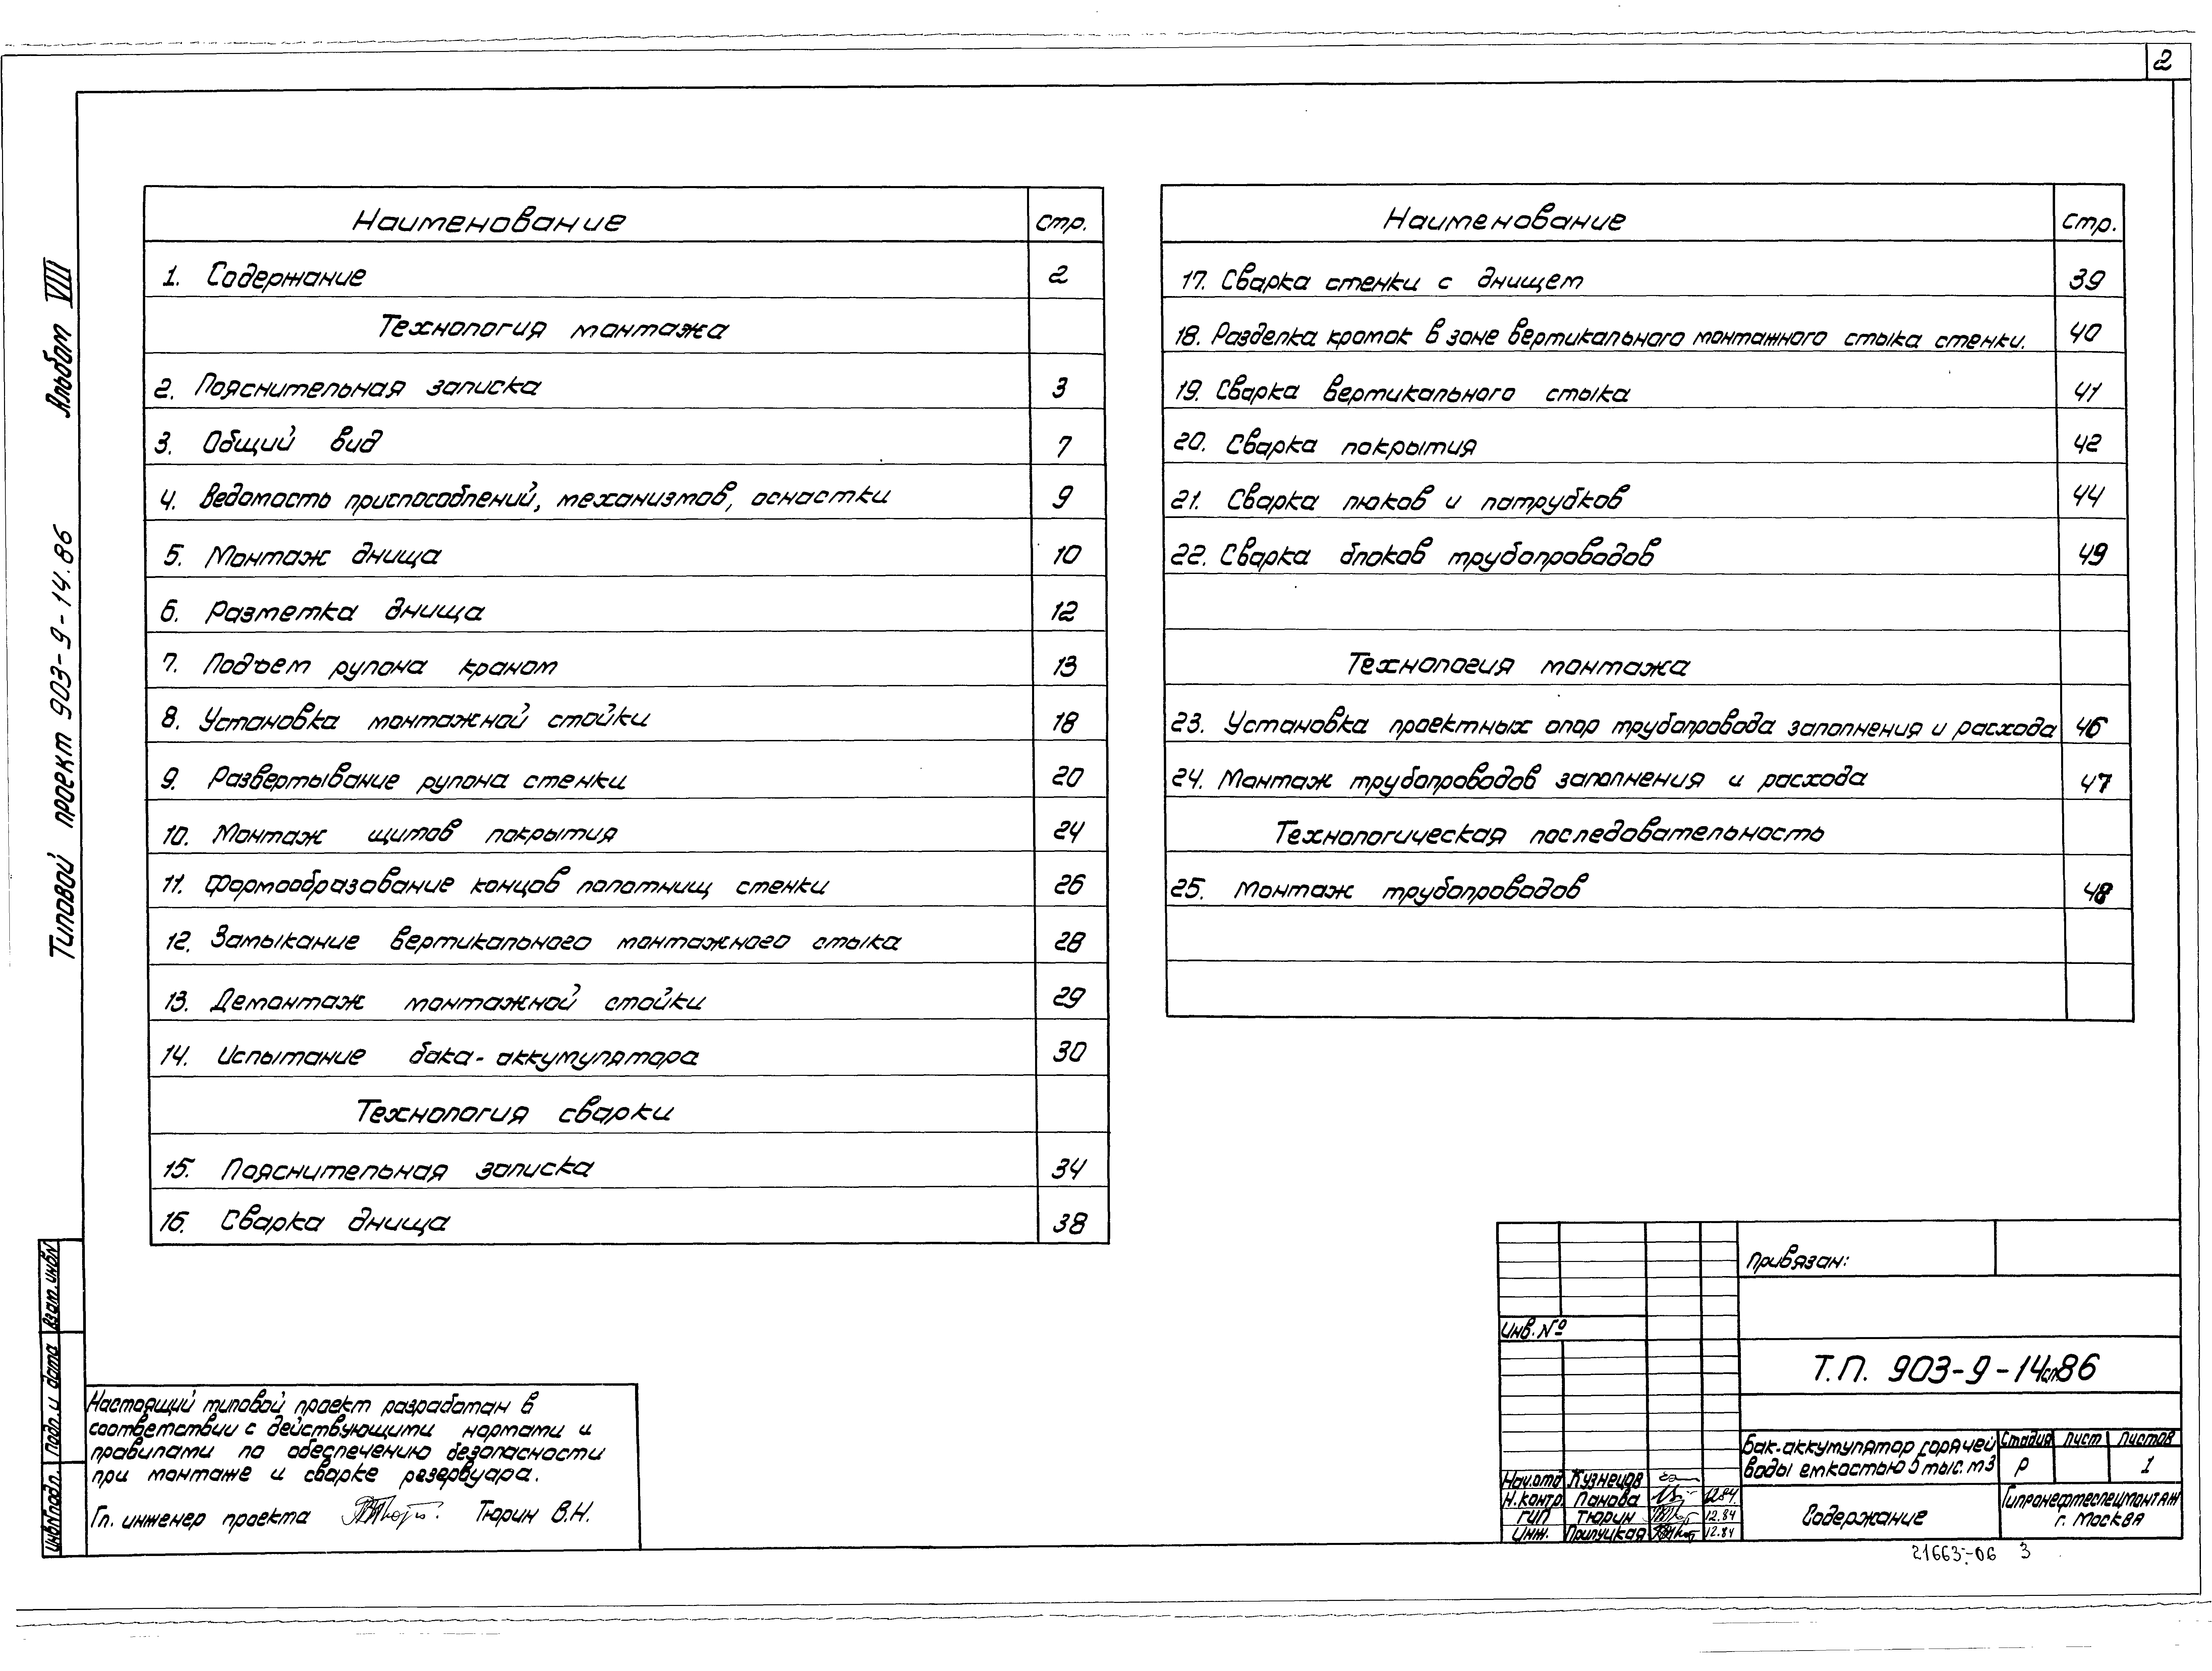 2
Альбом VIII
Типовой проект 903-9-14.86
Наименование стр.
1. Содержание 2
Технология монтажа
2. Пояснительная записка 3
3. Общий вид 7
4. Ведомость приспособлений, механизмов, оснастки 9
5. Монтаж днища 10
6. Разметка днища 12
7. Подъем рулона краном 13
8. Установка монтажной стойки 18
9. Развертывание рулона стенки 20
10. Монтаж щитов покрытия 24
11. Формообразование концов полотнищ стенки 26
12. Замыкание вертикального монтажного стыка 28
13. Демонтаж монтажной стойки 29
14. Испытание бака-аккумулятора 30
Технология сварки
15. Пояснительная записка 34
16. Сварка днища 38
Наименование стр.
17. Сварка стенки с днищем 39
18. Разделка кромок в зоне вертикального монтажного стыка стенки. 40
19. Сварка вертикального стыка 41
20. Сварка покрытия 42
21. Сварка люков и патрубков 44
22. Сварка блоков трубопроводов 49
Технология монтажа
23. Установка проектных опор трубопровода заполнения и расхода 46
24. Монтаж трубопроводов заполнения и расхода 47
Технологическая последовательность
25. Монтаж трубопроводов 48
Взам.инв№
Подп. и дата
Инв№подл.
Настоящий типовой проект разработан в
соответствии с действующими нормами и
правилами по обеспечению безопасности
при монтаже и сварке резервуара.
Гл. инженер проекта Тюрин В.Н.
Привязан:
Инв. №
Т.П. 903-9-14сп86
Бак-аккумулятор горячей
воды емкостью 5 тыс. м3
Стадия Лист Листов
Р 1
Нач.отд Кузнецов
Н.контр. Панова 12.84.
ГИП Тюрин 12.84
Инж. Прилуцкая 12.84
Содержание
Гипронефтеспецмонтаж
г. Москва
21663-06 3